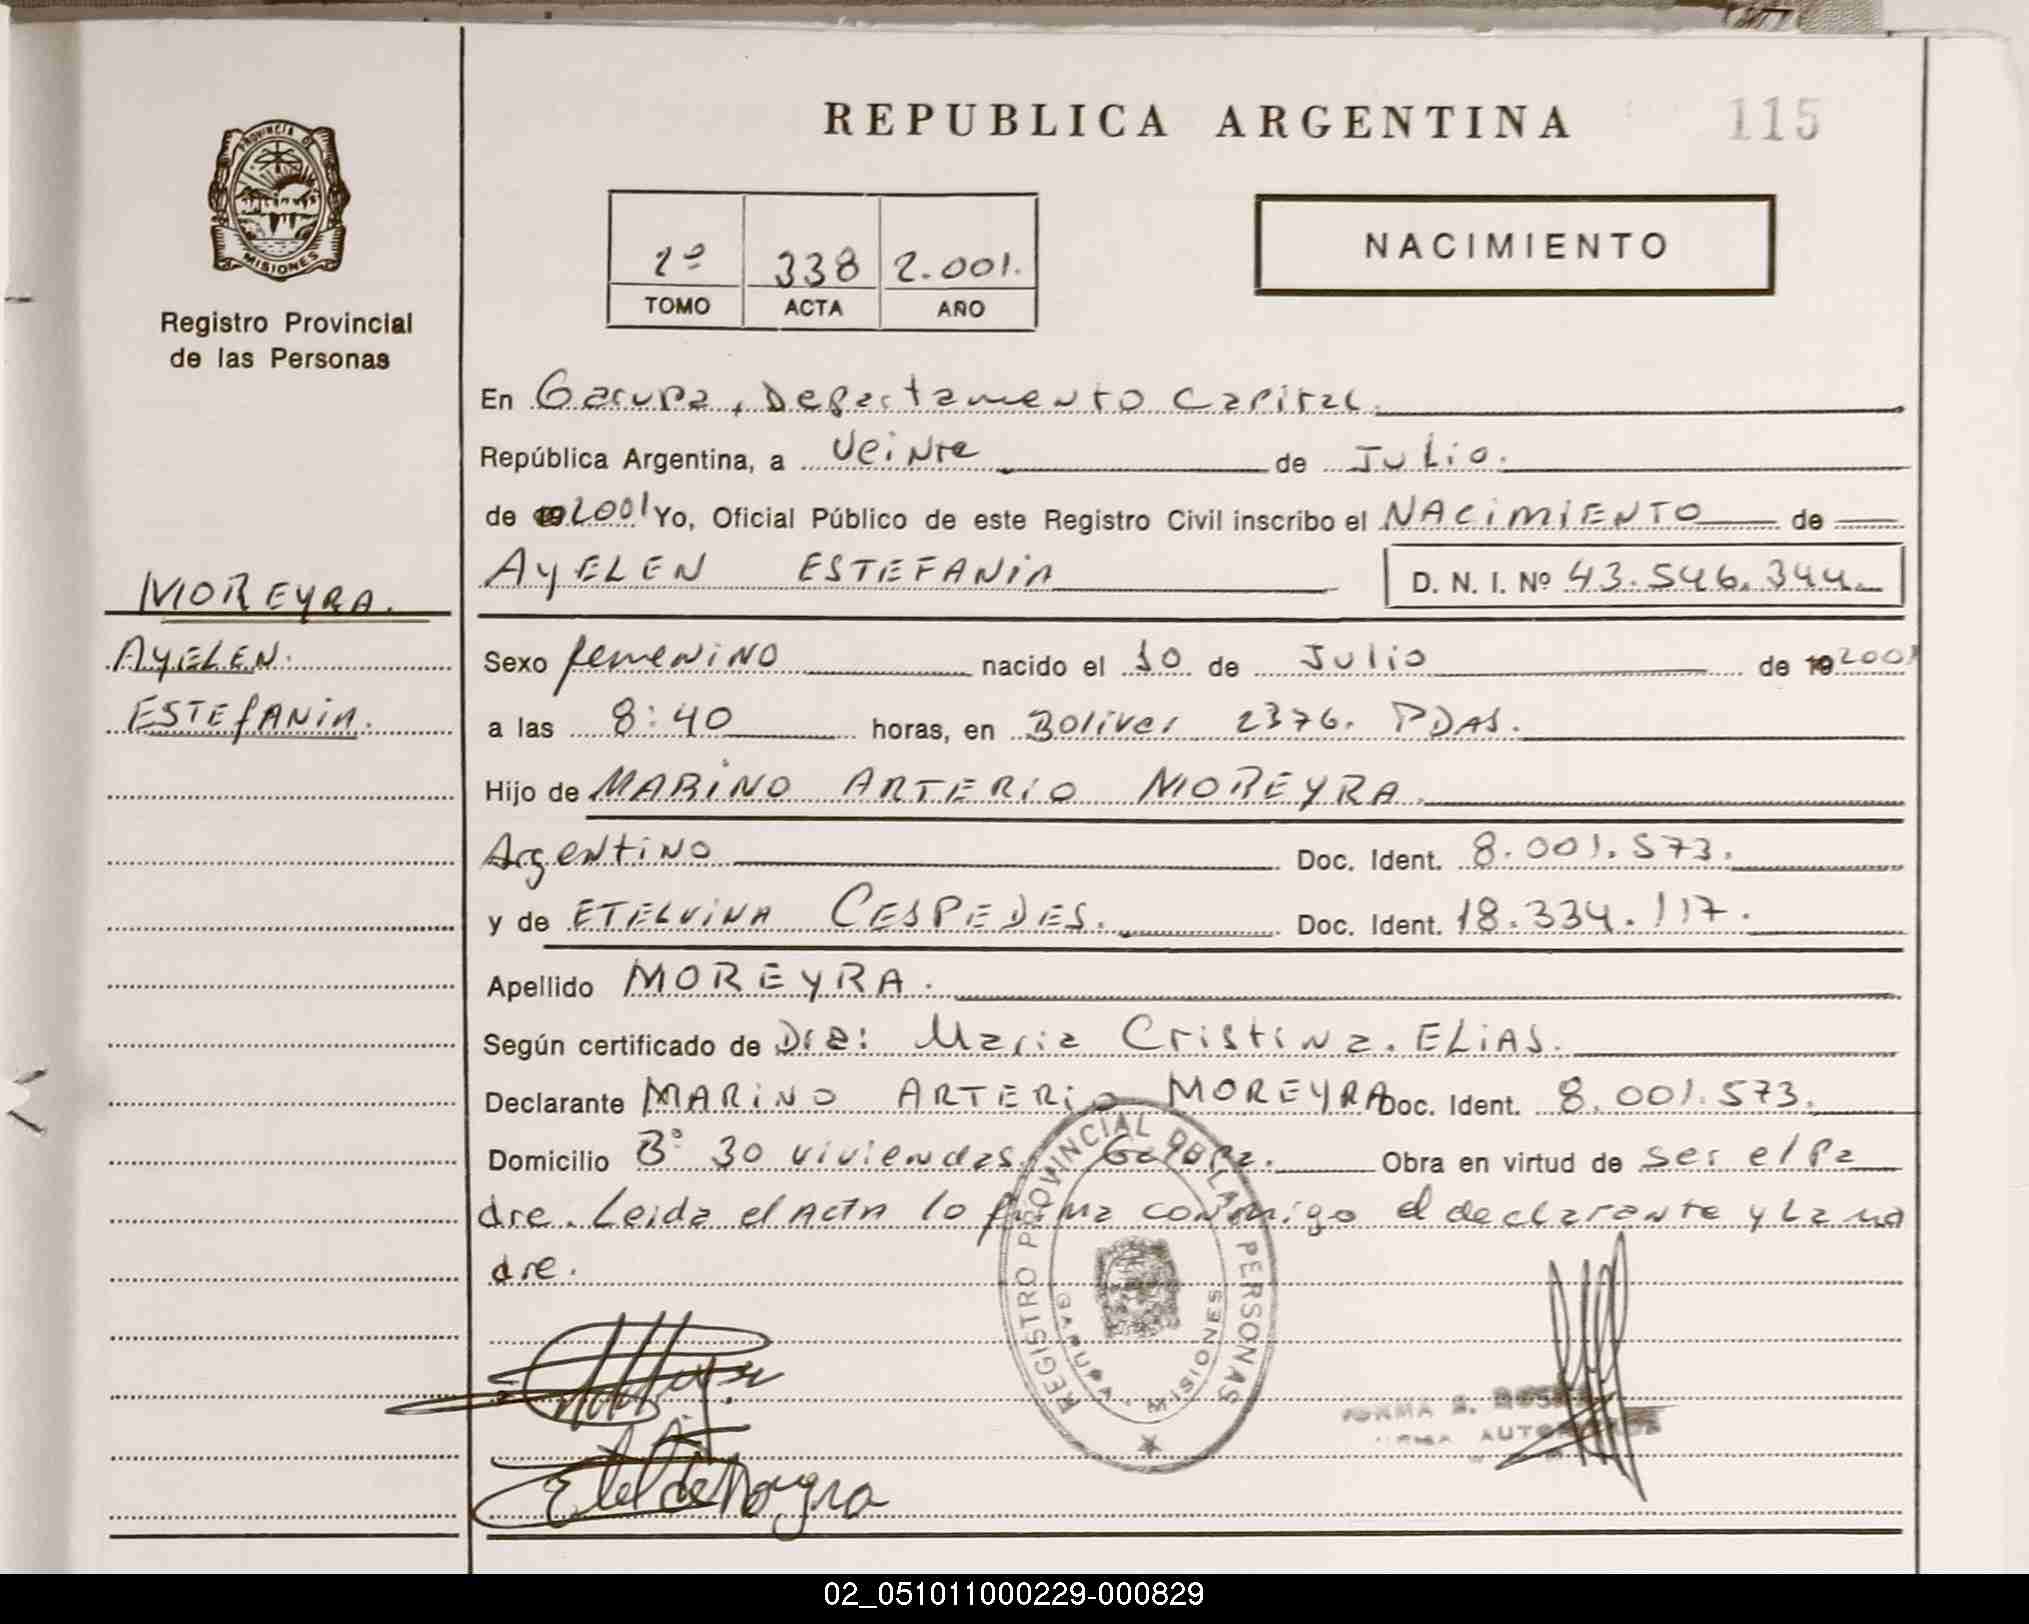 REPUBLICA ARGENTINA
115
PROVINCIA DE
MISIONES
Registro Provincial
de las Personas
2º 338 2.001.
TOMO ACTA AÑO
NACIMIENTO
En Garupa, Departamento Capital.
República Argentina, a Veinte de Julio.
de 2001 Yo, Oficial Público de este Registro Civil inscribo el NACIMIENTO de
AYELEN ESTEFANIA D. N. I. Nº 43.546.344.
MOREYRA.
AYELEN.
ESTEFANIA.
Sexo femenino nacido el 10 de Julio de 19 2001
a las 8:40 horas, en Bolivar 2376. PDAS.
Hijo de MARINO ARTERIO MOREYRA.
Argentino Doc. Ident. 8.001.573.
y de ETELVINA CESPEDES. Doc. Ident. 18.334.117.
Apellido MOREYRA.
Según certificado de Dra: Maria Cristina. ELIAS.
Declarante MARINO ARTERIO MOREYRA Doc. Ident. 8.001.573.
Domicilio Bº 30 viviendas, Garupa. Obra en virtud de ser el Pa
dre. Leida el Acta lo firma conmigo el declarante y La ma
dre.
REGISTRO PROVINCIAL DE LAS PERSONAS
GARUPA - MISIONES
NORMA
AUTO
02_051011000229-000829